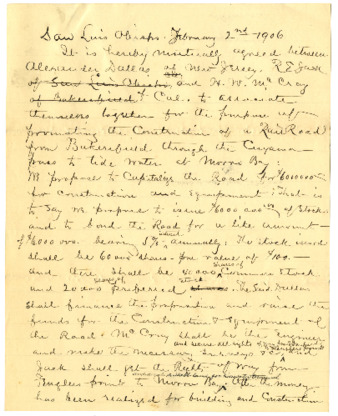 San Luis Obispo. February 2nd 1906
It is hereby mutually agreed between
Alexander Dallas of New Jersey. R E Jack
of San Luis Obispo and H. W. McCray
of Bakersfield Cal. to associate
themselves together for the purpose of
promoting the Construction of a Rail Road
from Bakersfield through the
pass to tide water at Morro Bay:
We propose to Capitalize the Road for $6000000
for construction and Equipment: That is
to say we propose to issue $6000,000 of Stock
and to bond the Road for a like amount
of $6000 000. bearing 5% annually: The stock
shall be 60000 shares. par value of $100.
and there shall be 40000 shares of common stock
and 20000 shares of preferred stock. The said Dallas
shall finance the proposition and raise the
funds for the Construction & Equipment of
the Road & McCray shall be the Engineer
and make the necessary Surveys &
Jack shall get the Rights of Way from
point to Morro Bay. After the money
has been realized for building and Construction